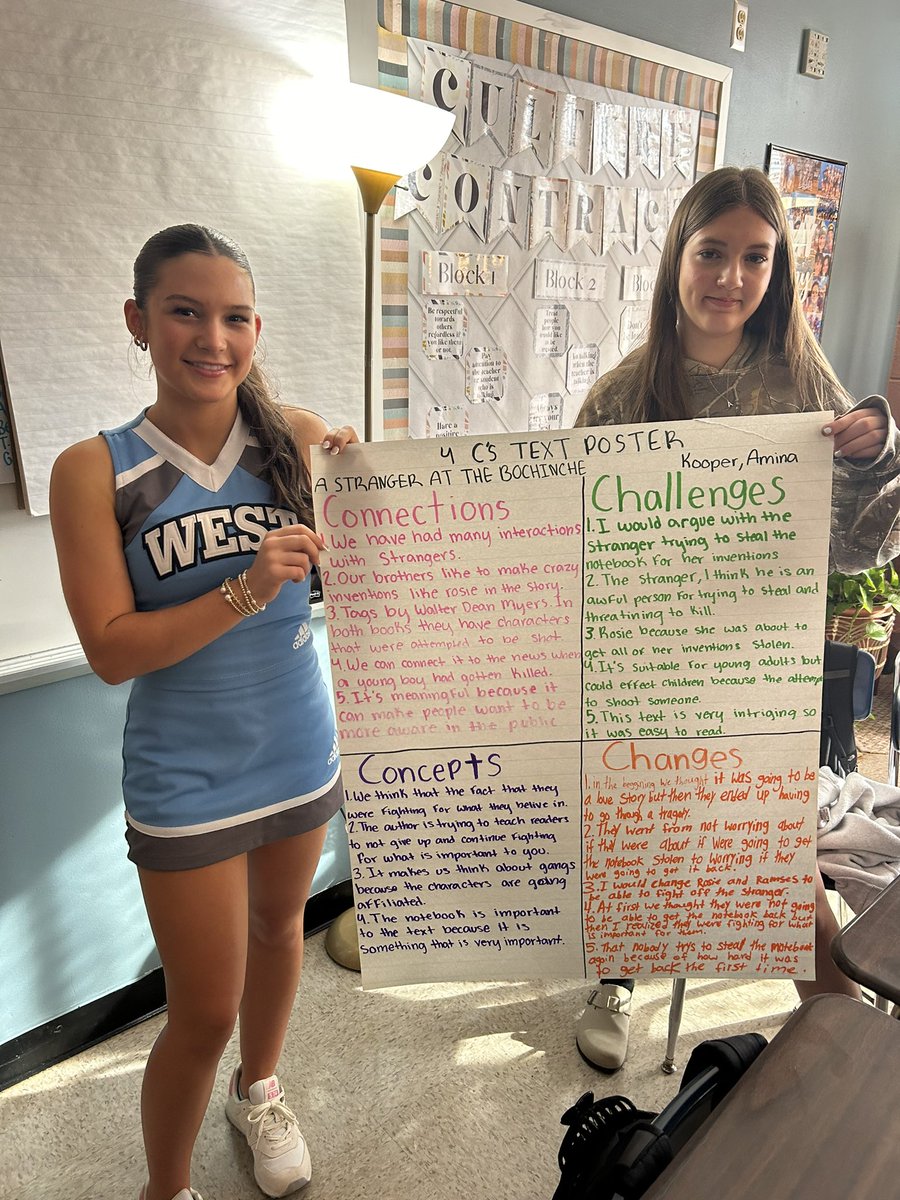 CULTURE
CONTRAC
Block 1
Block 2
Block
Be respectful
towards
others
regardless if
you like them
or not.
Treat
people how
you want
to be
treated.
Pay
attention
to the teacher
or student
who is
talking
No talking
when the
teacher is
talking.
Have a
positive
WEST
adidas
4 C'S TEXT POSTER
A STRANGER AT THE BOCHINCHE
Kooper, Amina
Connections
1. We have had many interactions
with Strangers.
2. Our brothers like to make crazy
inventions like rosie in the story.
3. Tags by Walter Dean Myers. In
both books they have characters
that were attempted to be shot.
4. We can connect it to the news when
a young boy had gotten killed.
5. It's meaningful because it
can make people want to be
more aware in the public
Challenges
1. I would argue with the
stranger trying to steal the
notebook for her inventions
2. The stranger, I think he is an
awful person for trying to steal and
threatining to kill.
3. Rosie because she was about to
get all of her inventions stolen.
4. It's suitable for young adults but
could effect children because the attempt
to shoot someone.
5. This text is very intriging so
it was easy to read.
Concepts
1. We think that the fact that they
were fighting for what they belive in.
2. The author is trying to teach readers
to not give up and continue fighting
for what is important to you.
3. It makes us think about gangs
because the characters are going
affiliated.
4. The notebook is important
to the text because it is
something that is very important.
Changes
1. In the beggning we thought it was going to be
a love story but then they ended up having
to go through a tragedy.
2. They went from not worrying about
if they were about if were going to get
the notebook stolen to worrying if they
were going to get it back.
3. I would change Rosie and Ramses to
be able to fight off the stranger.
4. At first we thought they were not going
to be able to get the notebook back but
then I realized they were fighting for what
is important for them.
5. That nobody trys to steal the notebook
again because of how hard it was
to get back the first time.